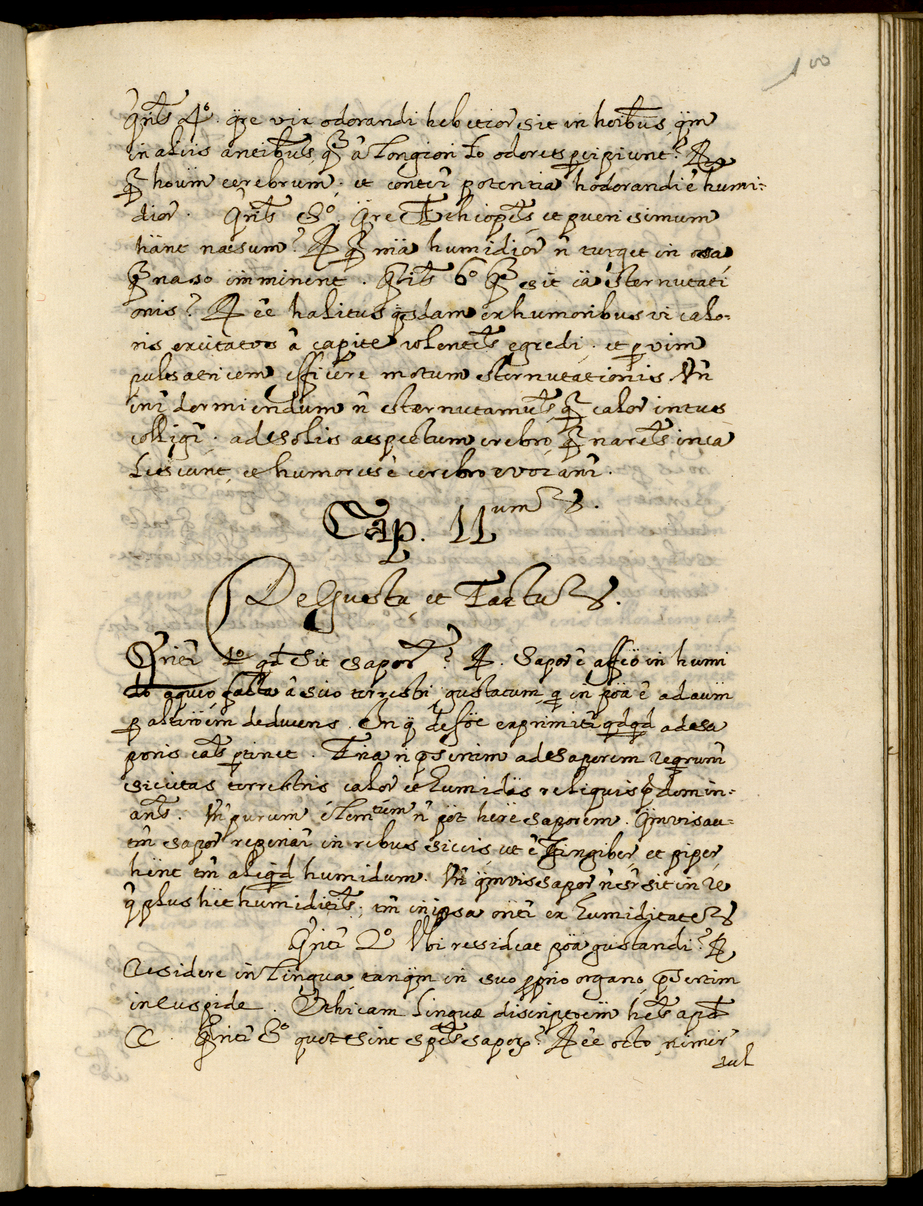 100
Qriť 4º. qre vis odorandi hebetior sit in hoibus, qm
in aliis antibus, q̃ â longiori to odores pcipiunt? R
q̃ hoium cerebrum, et conter potentia hodorandi ê humi-
dior. Qriť 5º. Qre Ethiopes et pueri simum
hãnt nasum? R q̃ mia humidior ñ turget in ossa
q̃ naso imminent. Qriť 6º Q̃ sit cã sternutati
onis? R êe halitus qsdam ex humoribus vi calo-
ris excitatos â capite volentes egredi. et p vim
pulsatricem efficere motum sternutationis. Vñ
inr dormiendum ñ sternutamus, q̃ calor intus
colligr. ad solis aspectum crebro, q̃ nares inca
lescunt, et humores è cerebro evocanr.
Cap. 11um
De Gustu et Tactu
Qritr 1º qd sit sapor? R. Sapor ê affeo in humi
do aqueo facta â sicco terrestri, gustatum, q in poã ê ad aum
p altiõem deducens. In q defõe exprimitr qdqd ad sa
poris cãs ptinet. Tria n psertim ad saporem reqrunr
siccitas terrestris calor et humiditas reliquis pdomin-
ans. Vñ purum elemtum ñ pot here saporem. Qmvis au-
tm sapor reperiar in rebus siccis, ut ê Zingiber et piper
hent tm aliqd humidum. Vñ qmvis sapor ñ sr sit in re
q̃ plus het humiditis, tm in ipsa oritr ex humiditate
Qritr 2º Vbi resideat poã gustandi? R
Residere in lingua, tanqm in suo pprio organo, psertim
in cuspide. Ethicam linguæ discriptoem hes apd
CC. Qritr 3º quot sint spes sapor? R êe octo, nimir
dul